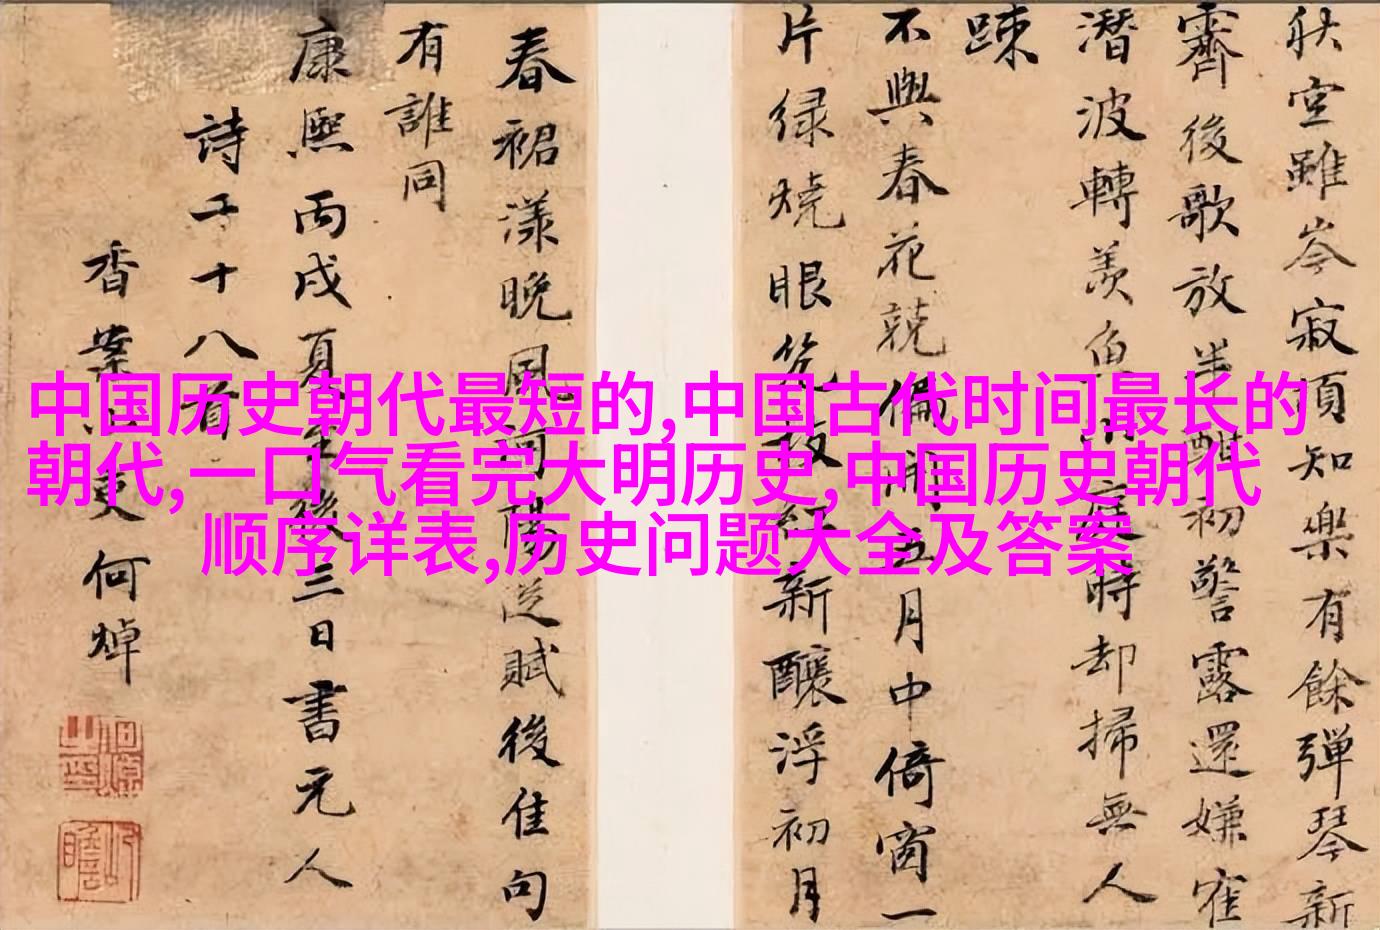 中国历史朝代最短的,中国古代时间最长的
朝代,一口气看完大明历史,中国历史朝代
顺序详表,历史问题大全及答案
秋空雖岑寂須知樂有餘彈琴新
霽後歌放半酣初警露還嫌寉
潛波轉羨魚庭時却掃無人
踈
不與春花競偏開五月中倚窗一
片緑燒眼幾枝紅新釀浮初月
春裙漾晚風河陽從賦後佳句
有誰同
康熙丙戌夏至後三日書元人
詩二十八首
香案小吏何焯